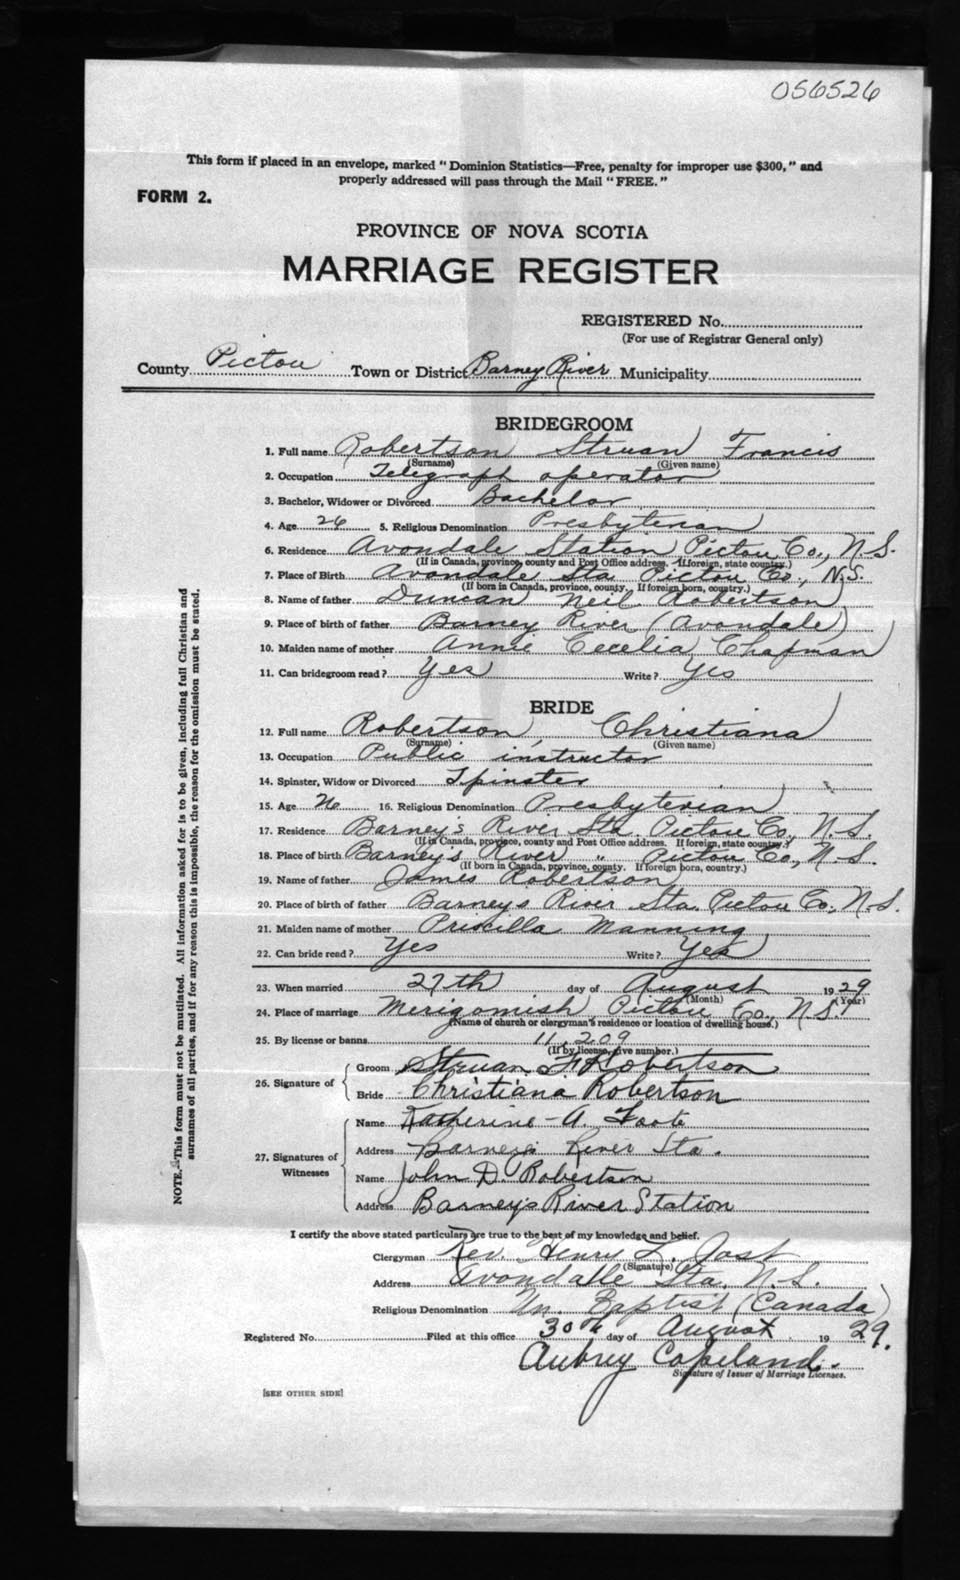 056526
This form if placed in an envelope, marked "Dominion Statistics—Free, penalty for improper use $300," and
properly addressed will pass through the Mail "FREE."
FORM 2.
PROVINCE OF NOVA SCOTIA
MARRIAGE REGISTER
REGISTERED No.
(For use of Registrar General only)
County Pictou Town or District Barney River Municipality
BRIDEGROOM
1. Full name Robertson Struan Francis
(Surname) (Given name)
2. Occupation Telegraph operator
3. Bachelor, Widower or Divorced Bachelor
4. Age 26 5. Religious Denomination Presbyterian
6. Residence Avondale Station Pictou Co., N.S.
(If in Canada, province, county and Post Office address. If foreign, state country.)
7. Place of Birth Avondale Sta. Pictou Co., N.S.
(If born in Canada, province, county. If foreign born, country.)
8. Name of father Duncan Neil Robertson
9. Place of birth of father Barney River (Avondale)
10. Maiden name of mother Annie Cecelia Chapman
11. Can bridegroom read? Yes Write? Yes
BRIDE
12. Full name Robertson, Christiana
(Surname) (Given name)
13. Occupation Public instructor
14. Spinster, Widow or Divorced Spinster
15. Age 16. Religious Denomination Presbyterian
17. Residence Barney's River Sta. Pictou Co., N.S.
(If in Canada, province, county and Post Office address. If foreign, state country.)
18. Place of birth Barney's River " Pictou Co., N.S.
(If born in Canada, province, county. If foreign born, country.)
19. Name of father James Robertson
20. Place of birth of father Barney's River Sta. Pictou Co., N.S.
21. Maiden name of mother Priscilla Manning
22. Can bride read? Yes Write? Yes
23. When married 27th day of August 1929
(Month) (Year)
24. Place of marriage Merigomish, Pictou Co., N.S.
(Name of church or clergyman's residence or location of dwelling house.)
25. By license or banns 11,209
(If by license, give number.)
26. Signature of Groom Struan F. Robertson
Bride Christiana Robertson
27. Signatures of Witnesses
Name Katherine A. Foote
Address Barney's River Sta.
Name John D. Robertson
Address Barney's River Station
I certify the above stated particulars are true to the best of my knowledge and belief.
Clergyman Rev. Henry L. Jost
(Signature)
Address Avondale Sta. N.S.
Religious Denomination Un. Baptist (Canada)
Registered No. Filed at this office 30th day of August 1929.
Aubrey Copeland.
Signature of Issuer of Marriage Licenses.
[SEE OTHER SIDE]
NOTE.—This form must not be mutilated. All information asked for is to be given, including full Christian and
surnames of all parties, and if for any reason this is impossible, the reason for the omission must be stated.